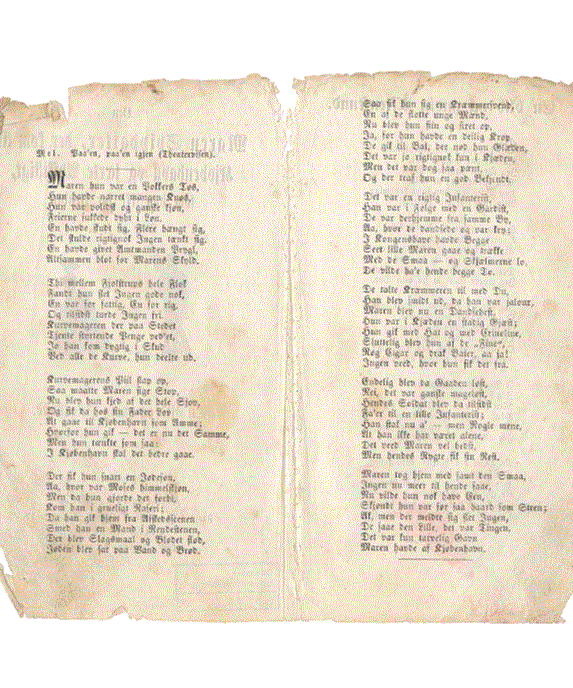 Mel. Paa'en, paa'en igien (Theatervisen).
Maren hun var en Pokkers Tøs,
Hun havde narret mangen Knøs,
Hun var voldsk og ganske kjøn,
Freierne sukkede dybt i Løn.
En havde studt sig, Flere hængt sig,
Det skulde rigtignok Ingen tænkt sig.
En havde givet Amtmanden Prygl,
Altsammen blot for Marens Skyld.
Thi mellem Fjolstrups hele Flok
Fandt hun slet Ingen gode nok,
En var for fattig, En for rig,
Og tilsidst turde Ingen fri.
Kurvemageren der paa Stedet
Tjente sværende Penge ved'et,
Jo han kom dygtig i Skud
Ved alle de Kurve, hun deelte ud.
Kurvemagerens Piil slap op,
Saa maatte Maren sige Stop,
Nu blev hun kjed af det hele Sjov,
Og fik da hos sin Fader Lov
At gaae til Kjøbenhavn som Amme;
Hvorfor hun gik — det er nu det Samme,
Men hun tænkte som saa:
I Kjøbenhavn skal det bedre gaae.
Der fik hun snart en Jødesøn,
Aa, hvor var Moses himmelskjøn,
Men da hun gjorde det forbi,
Kom han i grueligt Raseri;
Da han gik hjem fra Afskedsscenen
Smed han en Mand i Rendestenen,
Der blev Slagsmaal og Blodet flød,
Jøden blev sat paa Vand og Brød.
Saa fik hun sig en Kræmmersvend,
En af de flotte unge Mænd,
Nu blev hun fiin og stret op,
Ja, for hun havde en deilig Krop.
De gik til Bal, der nød hun Glæden,
Det var jo rigtignok kun i Kjæden,
Men det var dog saa pænt,
Og der traf hun en god Bekjendt.
Det var en rigtig Infanterist,
Han var i Følge med en Gardist,
De var derhjemme fra samme By,
Aa, hvor de dandsede og var kry;
I Kongenshave havde Begge
Seet lille Maren gaae og trække
Med de Smaa — og Skjælmerne lo,
De vilde ha'e hende begge To.
De talte Kræmmeren til med Du,
Han blev smidt ud, da han var jalour,
Maren blev nu en Dandsehest,
Hun var i Kjæden en stadig Gjæst;
Hun gik med Hat og med Crinoline,
Sluttelig blev hun af de „Fine“,
Røg Cigar og drak Baier, aa ja!
Ingen veed, hvor hun fik det fra.
Endelig blev da Gaaden løst,
Nei, det var ganske mageløst,
Hendes Soldat blev da tilsidst
Fa'er til en lille Infanterist;
Han stak nu a' — men Nogle mene,
At han ikke har været alene,
Det veed Maren vel bedst,
Men hendes Rygte fik sin Rest.
Maren tog hjem med samt den Smaa,
Ingen nu meer til hende saae,
Nu vilde hun nok have Een,
Skjøndt hun var før saa haard som Steen;
Ak, men der meldte sig slet Ingen,
De saae den Lille, det var Tingen.
Det var kun tarvelig Gavn
Maren havde af Kjøbenhavn.